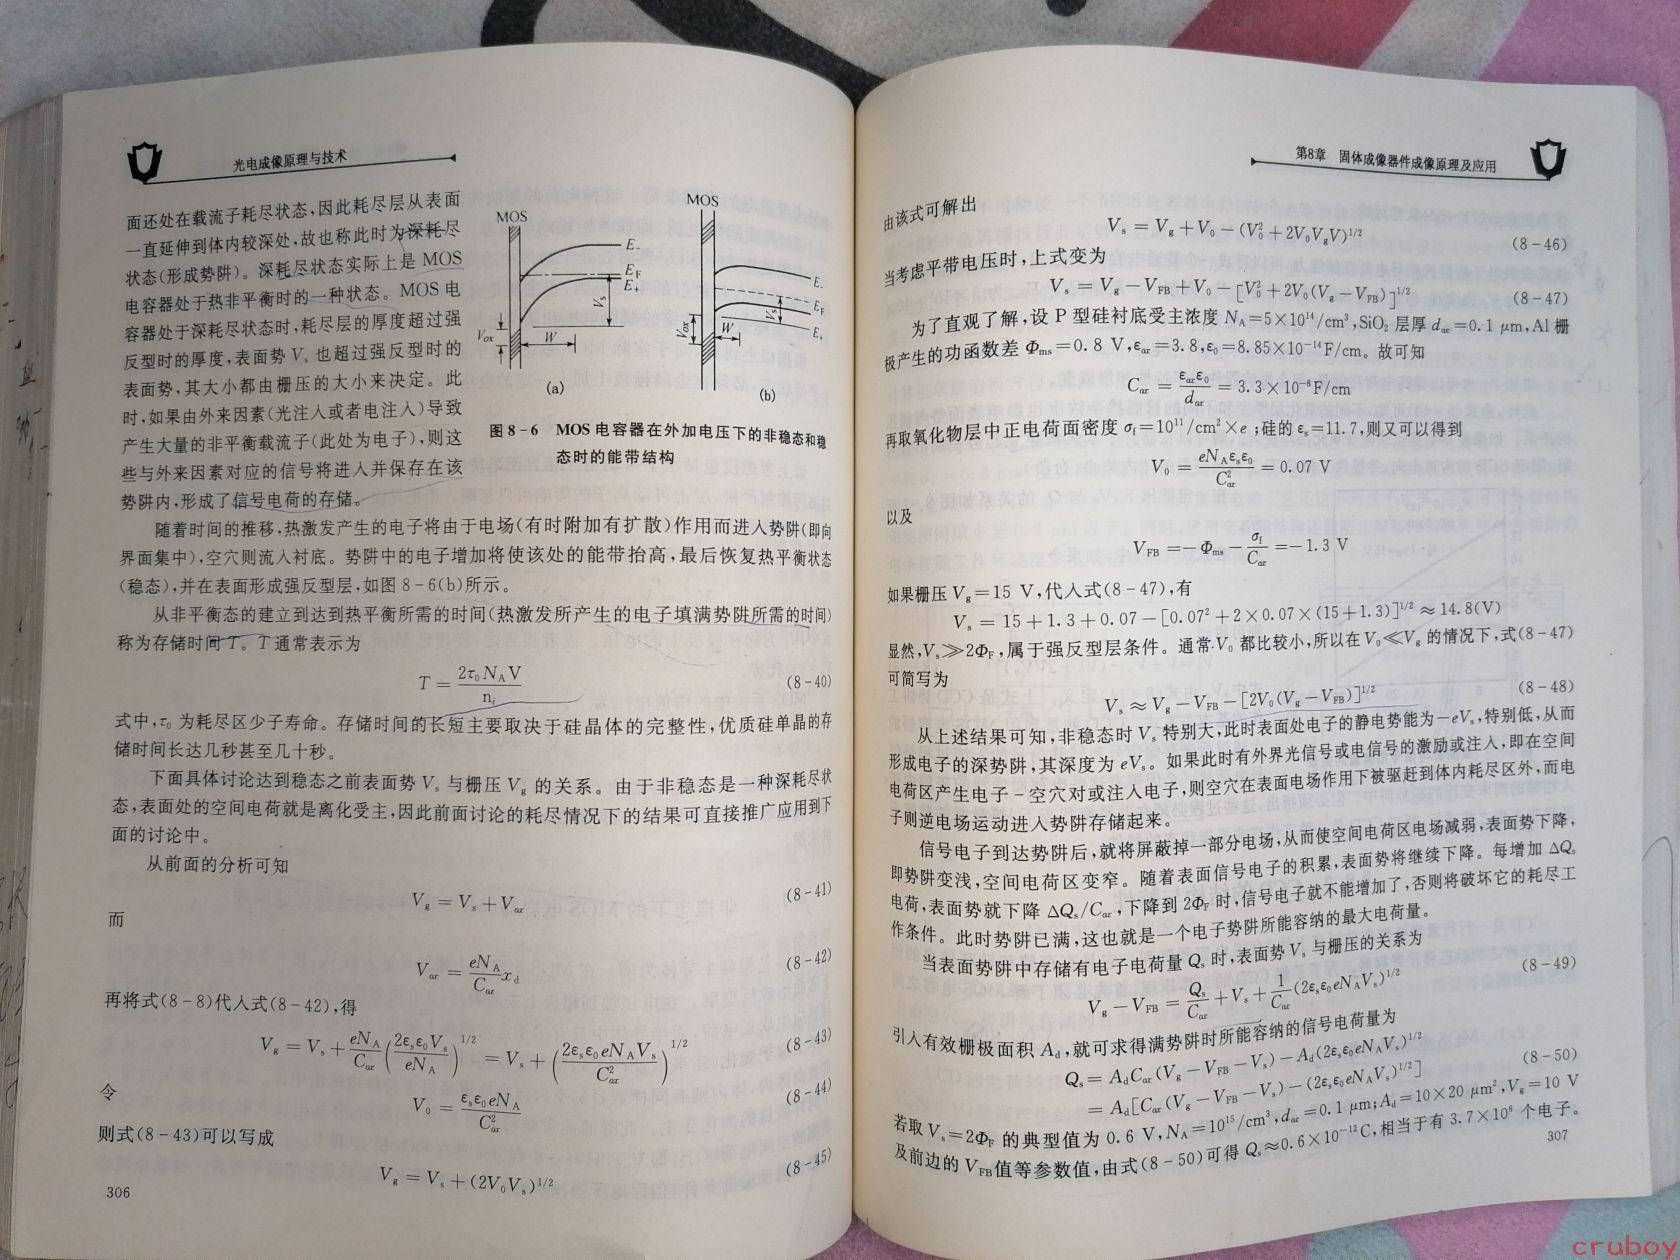 光电成像原理与技术
面还处在载流子耗尽状态,因此耗尽层从表面
一直延伸到体内较深处,故也称此时为深耗尽
状态(形成势阱)。深耗尽状态实际上是 MOS
电容器处于热非平衡时的一种状态。MOS 电
容器处于深耗尽状态时,耗尽层的厚度超过强
反型时的厚度,表面势 Vs 也超过强反型时的
表面势,其大小都由栅压的大小来决定。此
时,如果由外来因素(光注入或者电注入)导致
产生大量的非平衡载流子(此处为电子),则这
些与外来因素对应的信号将进入并保存在该
势阱内,形成了信号电荷的存储。
MOS
E-
EF
E+
Vs
Vox
W
(a)
MOS
E-
EF
E+
Vs
Vox
W
(b)
图 8-6 MOS 电容器在外加电压下的非稳态和稳
态时的能带结构
随着时间的推移,热激发产生的电子将由于电场(有时附加有扩散)作用而进入势阱(即向
界面集中),空穴则流入衬底。势阱中的电子增加将使该处的能带抬高,最后恢复热平衡状态
(稳态),并在表面形成强反型层,如图 8-6(b)所示。
从非平衡态的建立到达到热平衡所需的时间(热激发所产生的电子填满势阱所需的时间)
称为存储时间 T。T 通常表示为
T = 2τ0NAV / ni (8-40)
式中,τ0 为耗尽区少子寿命。存储时间的长短主要取决于硅晶体的完整性,优质硅单晶的存
储时间长达几秒甚至几十秒。
下面具体讨论达到稳态之前表面势 Vs 与栅压 Vg 的关系。由于非稳态是一种深耗尽状
态,表面处的空间电荷就是离化受主,因此前面讨论的耗尽情况下的结果可直接推广应用到下
面的讨论中。
从前面的分析可知
Vg = Vs + Vox (8-41)
而
Vox = (eNA/Cox)xd (8-42)
再将式(8-8)代入式(8-42),得
Vg = Vs + (eNA/Cox)(2εsε0Vs/eNA)^1/2 = Vs + (2εsε0eNAVs/Cox²)^1/2 (8-43)
令
V0 = εsε0eNA/Cox² (8-44)
则式(8-43)可以写成
Vg = Vs + (2V0Vs)^1/2 (8-45)
306
第8章 固体成像器件成像原理及应用
由该式可解出
Vs = Vg + V0 - (V0² + 2V0VgV)^1/2 (8-46)
当考虑平带电压时,上式变为
Vs = Vg - VFB + V0 - [V0² + 2V0(Vg - VFB)]^1/2 (8-47)
为了直观了解,设 P 型硅衬底受主浓度 NA=5×10^14/cm³,SiO2 层厚 dox=0.1 μm,Al 栅
极产生的功函数差 Φms=0.8 V,εox=3.8,ε0=8.85×10^-14 F/cm。故可知
Cox = εoxε0/dox = 3.3×10^-8 F/cm
再取氧化物层中正电荷面密度 σf=10^11/cm²×e;硅的 εs=11.7,则又可以得到
V0 = eNAεsε0/Cox² = 0.07 V
以及
VFB = -Φms - σf/Cox = -1.3 V
如果栅压 Vg=15 V,代入式(8-47),有
Vs = 15+1.3+0.07-[0.07²+2×0.07×(15+1.3)]^1/2 ≈ 14.8(V)
显然,Vs≫2ΦF,属于强反型层条件。通常 V0 都比较小,所以在 V0≪Vg 的情况下,式(8-47)
可简写为
Vs ≈ Vg - VFB - [2V0(Vg - VFB)]^1/2 (8-48)
从上述结果可知,非稳态时 Vs 特别大,此时表面处电子的静电势能为 -eVs,特别低,从而
形成电子的深势阱,其深度为 eVs。如果此时有外界光信号或电信号的激励或注入,即在空间
电荷区产生电子-空穴对或注入电子,则空穴在表面电场作用下被驱赶到体内耗尽区外,而电
子则逆电场运动进入势阱存储起来。
信号电子到达势阱后,就将屏蔽掉一部分电场,从而使空间电荷区电场减弱,表面势下降,
即势阱变浅,空间电荷区变窄。随着表面信号电子的积累,表面势将继续下降。每增加 ΔQs
电荷,表面势就下降 ΔQs/Cox,下降到 2ΦF 时,信号电子就不能增加了,否则将破坏它的耗尽工
作条件。此时势阱已满,这也就是一个电子势阱所能容纳的最大电荷量。
当表面势阱中存储有电子电荷量 Qs 时,表面势 Vs 与栅压的关系为
Vg - VFB = Qs/Cox + Vs + (1/Cox)(2εsε0eNAVs)^1/2 (8-49)
引入有效栅极面积 Ad,就可求得满势阱时所能容纳的信号电荷量为
Qs = AdCox(Vg - VFB - Vs) - Ad(2εsε0eNAVs)^1/2
= Ad[Cox(Vg - VFB - Vs) - (2εsε0eNAVs)^1/2] (8-50)
若取 Vs=2ΦF 的典型值为 0.6 V,NA=10^15/cm³,dox=0.1 μm;Ad=10×20 μm²,Vg=10 V
及前边的 VFB值等参数值,由式(8-50)可得 Qs≈0.6×10^-12 C,相当于有 3.7×10^6 个电子。
307
cruboy